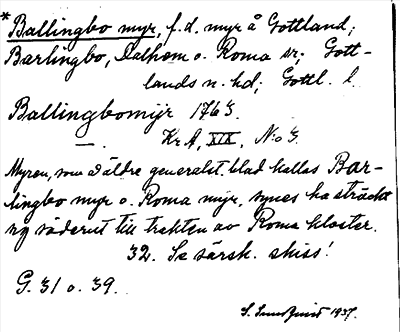 * Ballingbo myr, f.d. myr å Gottland;
Barlingbo, Dalhem o. Roma sr; Gott-
lands n. hd; Gottl. l.
Ballingbomyr 1763.
— Kr A, XIX, No 3.
Myren, som å äldre generalst. blad kallas Bar-
lingbo myr o. Roma myr, synes ha sträckt
sig söderut till trakten av Roma kloster.
32. Se särsk. skiss!
G. 31 o. 39.
S. 1937.